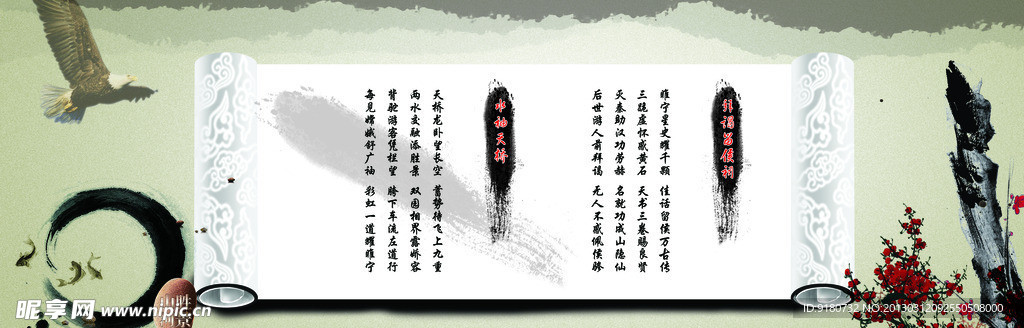 拜谒留侯祠
睢宁星史耀千颜 佳话留侯万古传
三跪虚怀感黄石 天书三卷赐良贤
灭秦助汉功劳赫 名就功成山隐仙
后世游人前拜谒 无人不感佩侯滕
水袖天桥
天桥龙卧望长空 蓄势待飞上九重
两水交融添胜景 双园相界露娇容
背驼游客凭栏望 胯下车流左道行
每见嫦娥舒广袖 彩虹一道耀睢宁
昵享网 www.nipic.cn
ID:9180732 NO:20130312092550508000